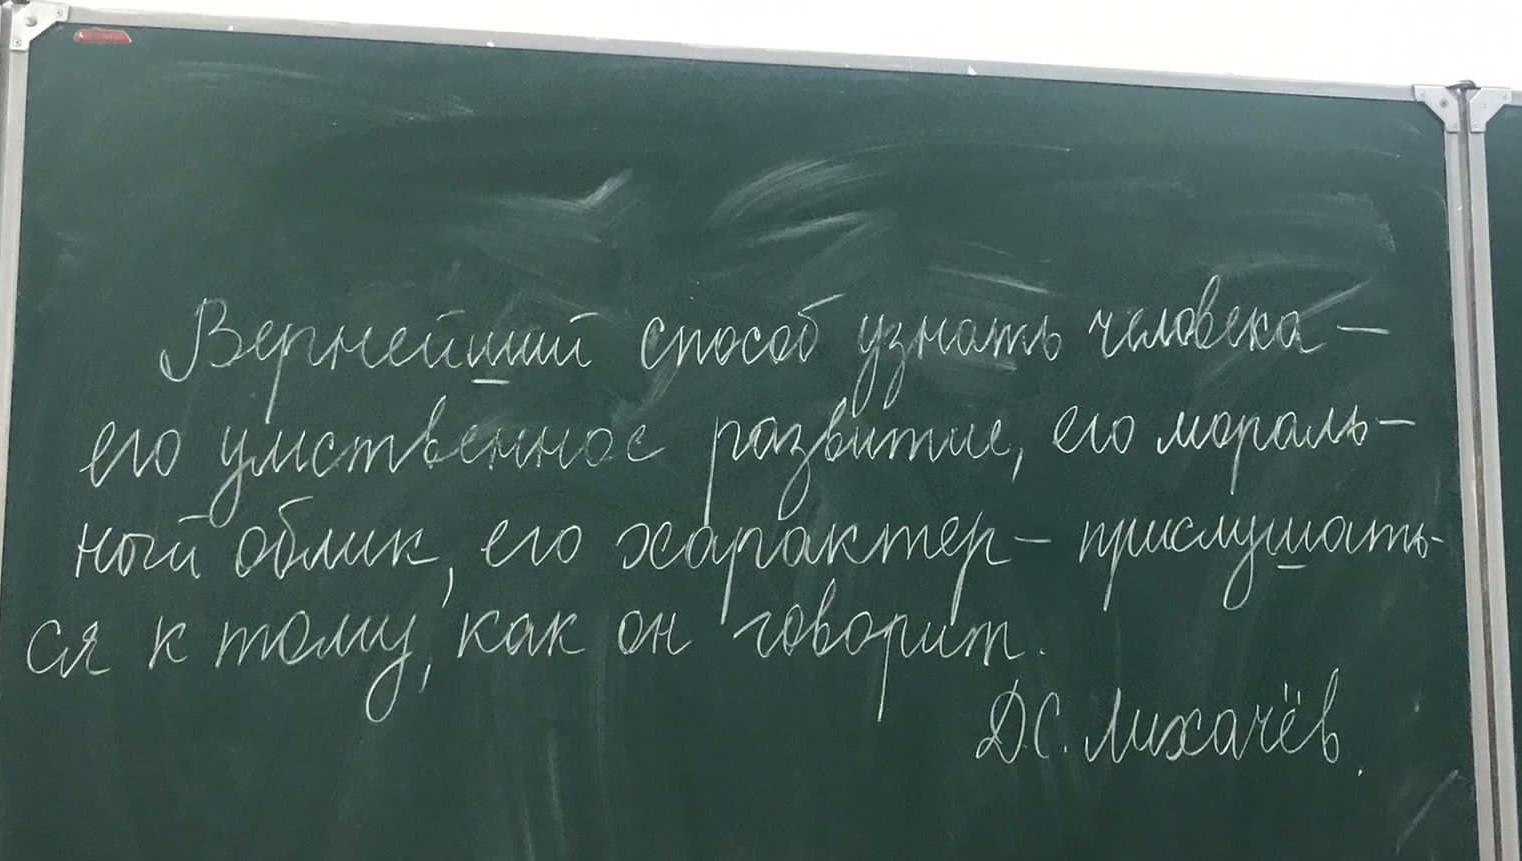 Вернейший способ узнать человека –
его умственное развитие, его мораль-
ный облик, его характер – прислушать-
ся к тому, как он говорит.
Д.С. Лихачёв.